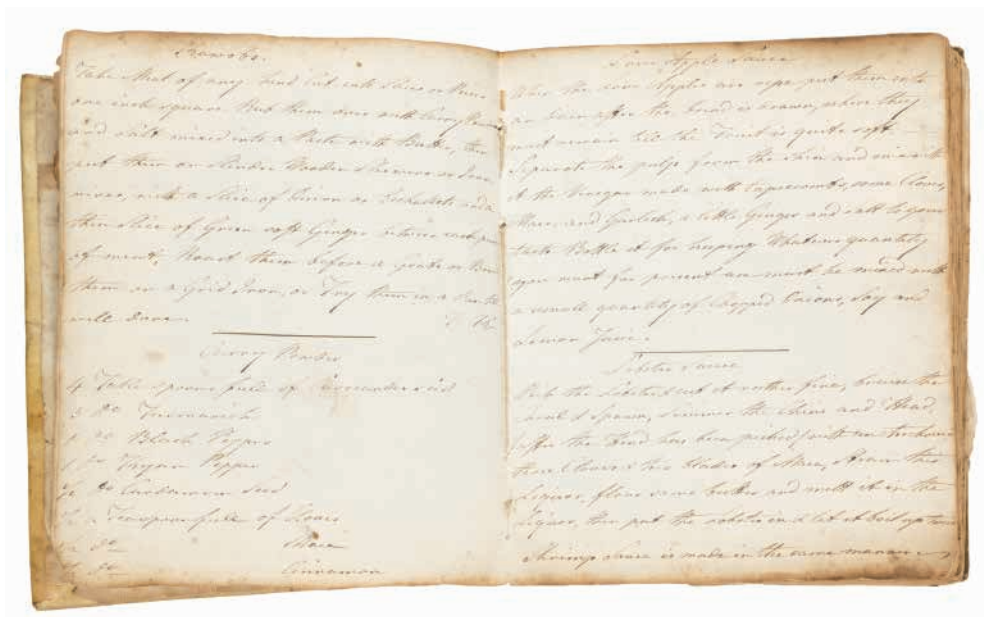 Take Meat of any kind cut into slices or Pieces
one inch square. Rub them over with Curry Powder
and salt mixed into a Paste with Butter, then
put them on slender Wooden Skewers or
with a Slice of Onion or and a
thin slice of Green soft Ginger between each piece
of meat, Roast them before a grate or
them on a Grid Iron, or Fry them in a Pan till
well done
Curry Powder
4 Table spoons full of seed
3 Do
Do Black Pepper
Do Pepper
Do Cardamom Seed
Teaspoon full of Cloves
Do Mace
Do Cinnamon
Love Apple Sauce
When the Love Apples are ripe put them into
an Oven after the bread is drawn, where they
must remain till the Fruit is quite soft.
Separate the pulp from the skin and mix with
it the Vinegar made with some Cloves,
Mace, and Garlick, a little Ginger and salt to your
taste Bottle it for keeping Whatever quantity
you want for present use must be mixed with
a small quantity of Chopped Onions, Soy and
Lemon Juice.
Lobster Sauce
Pick the Lobster cut it rather fine, bruise the
& Spawn, simmer the and Head,
(after the Head has been picked) with an Anchovie
three Cloves & two blades of Mace, Strain this
Liquor, flour some butter and melt it in the
Liquor, then put the Lobster in & let it boil up
Shrimp Sauce is made in the same manner